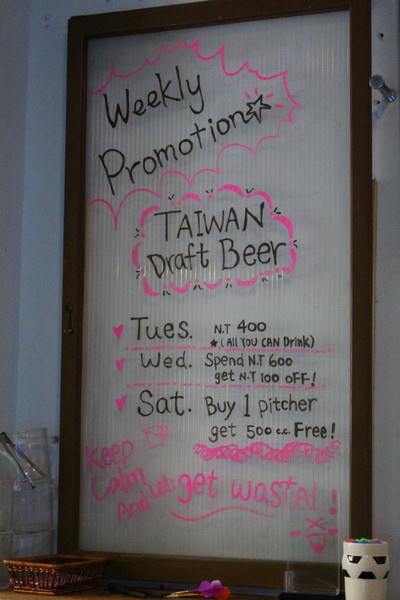 Weekly
Promotion
TAIWAN
Draft Beer
Tues. N.T 400
★(All YOU CAN Drink)
Wed. Spend N.T 600
get N.T 100 OFF!
Sat. Buy 1 pitcher
get 500 c.c. Free!
KEEP
Calm
And Let's get wasted!